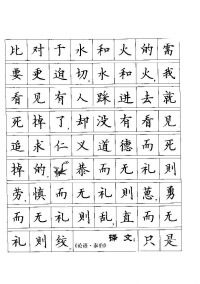 比对于水和火的需
要更迫切。水和火，我
看见有人踩进去就
死掉了，却没有看见
追求仁义道德而死
掉的。恭而无礼则
劳，慎而无礼则葸，勇
而无礼则乱，直而无
礼则绞。《论语·泰伯》 译文 只是